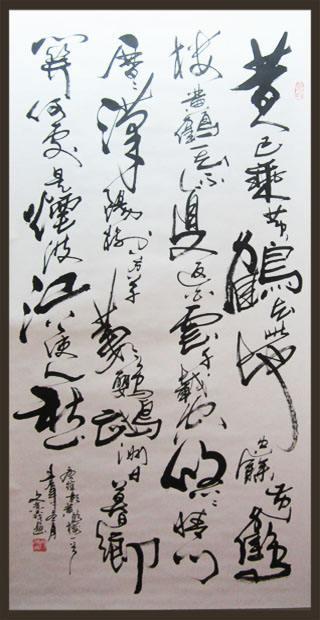 昔人已乘黃鶴去此地空餘黃鶴
樓黃鶴一去不復返白雲千載空悠悠晴川
歷歷漢陽樹芳草萋萋鸚鵡洲日暮鄉
關何處是煙波江上使人愁